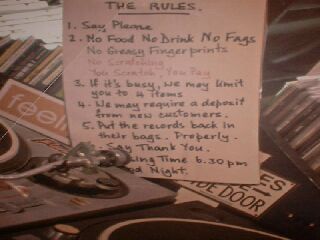 THE RULES.
1. Say Please
2. No Food No Drink No Fags
No Greasy Fingerprints
No Scratching
You Scratch, You Pay
3. If it's busy, we may limit
you to 4 items
4. We may require a deposit
from new customers.
5. Put the records back in
their bags. Properly.
Say Thank You.
Time 6.30pm
Night.
feel
DOOR